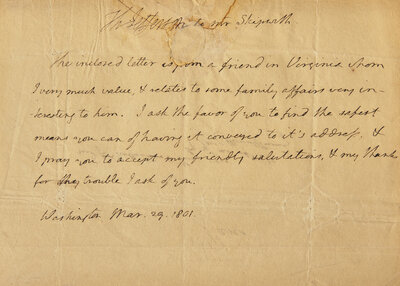 Th: Jefferson to mr Skipwith
The inclosed letter is from a friend in Virginia whom
I very much value, & relates to some family affairs very in-
teresting to him. I ask the favor of you to find the safest
means you can of having it conveyed to it's address, &
I pray you to accept my friendly salutations, & my thanks
for the trouble I ask of you.
Washington Mar. 29. 1801.